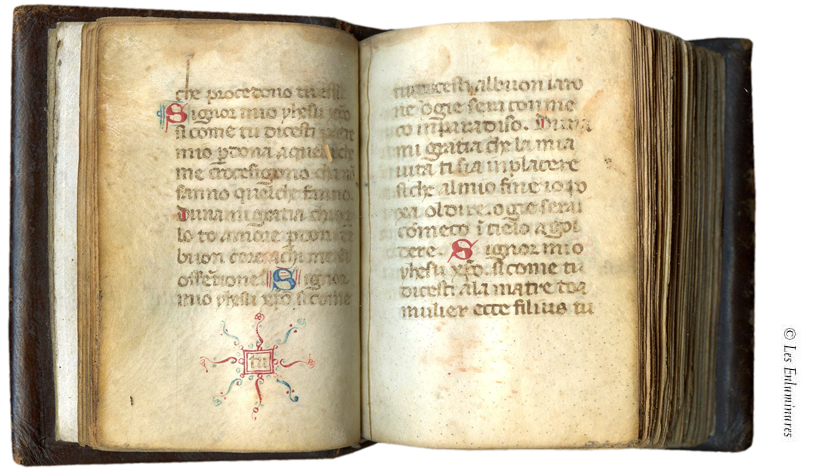 che procedono tu
Signor mio yhesu xpo
si come tu dicesti
mio pdona a que che
me crocefigono che nō
sanno quelche fanno.
Duna mi gratia chio
lo to amore pdon
buon core achi me
offeso Signor
mio yhesu xpo si come
tu
dicesti al buon laro
ne ogie serai con me
co in paradiso. Duna
mi gratia che la mia
uita ti sia in placere
si che al mio fine io
oldire. ogie serai
cō mecο ī cielo a gol
dere. Signor mio
yhesu xpo. si come tu
dicesti a la matre toa
mulier ecce filius tu
© Les Enluminures